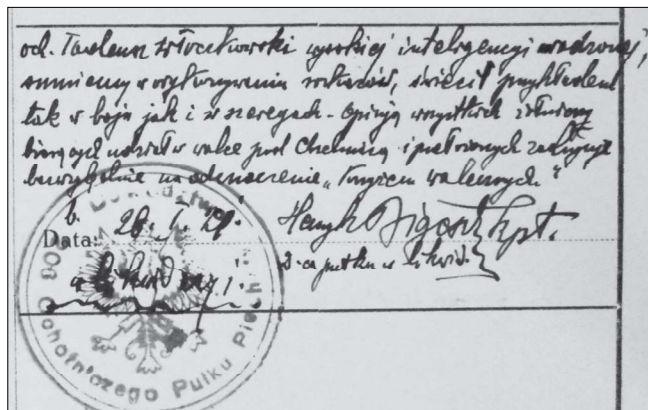 och. Tadeusz Złoczkowski wysokiej inteligencji wrodzonej,
sumienny w wykonywaniu rozkazów, świecił przykładem
tak w boju jak i w szeregach - opinją wszystkich żołnierzy
biorących udział w walce pod Chełmżą i zasługuje
bezwzględnie na odznaczenie „Krzyżem walecznych."
b.
Data: 28. I. 21.
Henryk Bigoszt kpt.
w likwidacji
D-ca pułku w likwid.
Dowództwo 208 Ochotniczego Pułku Piechoty